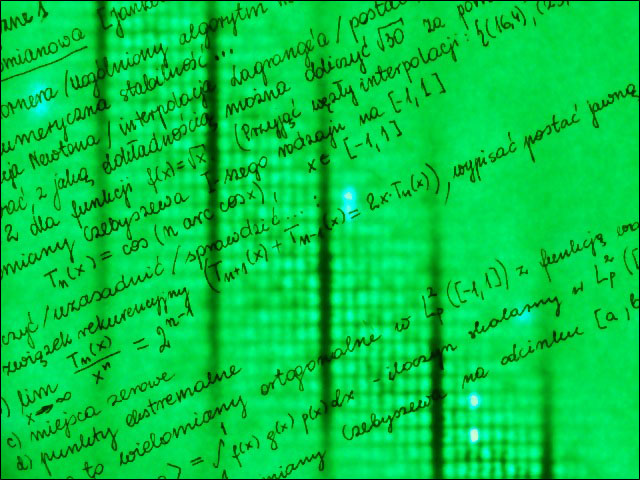 zne 1
omianowa [Janko
ornera / uogólniony algorytm
umeryczna stabilność...
ja Newtona / interpolacja Lagrange'a / postać
ać, z jaką dokładnością można obliczyć √30 za pom
2 dla funkcji f(x)=√x (Przyjąć węzły interpolacji: {(16,4), (25,
omiany Czebyszewa I-szego rodzaju na [-1,1]
Tn(x) = cos(n arc cos x), x∈[-1,1]
czyć / uzasadnić / sprawdzić...:
związek rekurencyjny (Tn+1(x) + Tn-1(x) = 2x·Tn(x)), wypisać postać jawną
) lim x→∞ Tn(x)/x^n = 2^(n-1)
c) miejsca zerowe
d) punkty ekstremalne
to wielomiany ortogonalne w L²ρ([-1,1]) z funkcją
⟩ = ∫ f(x) g(x) ρ(x) dx - iloczyn skalarny w L²ρ([
miany Czebyszewa na odcinku [a,b